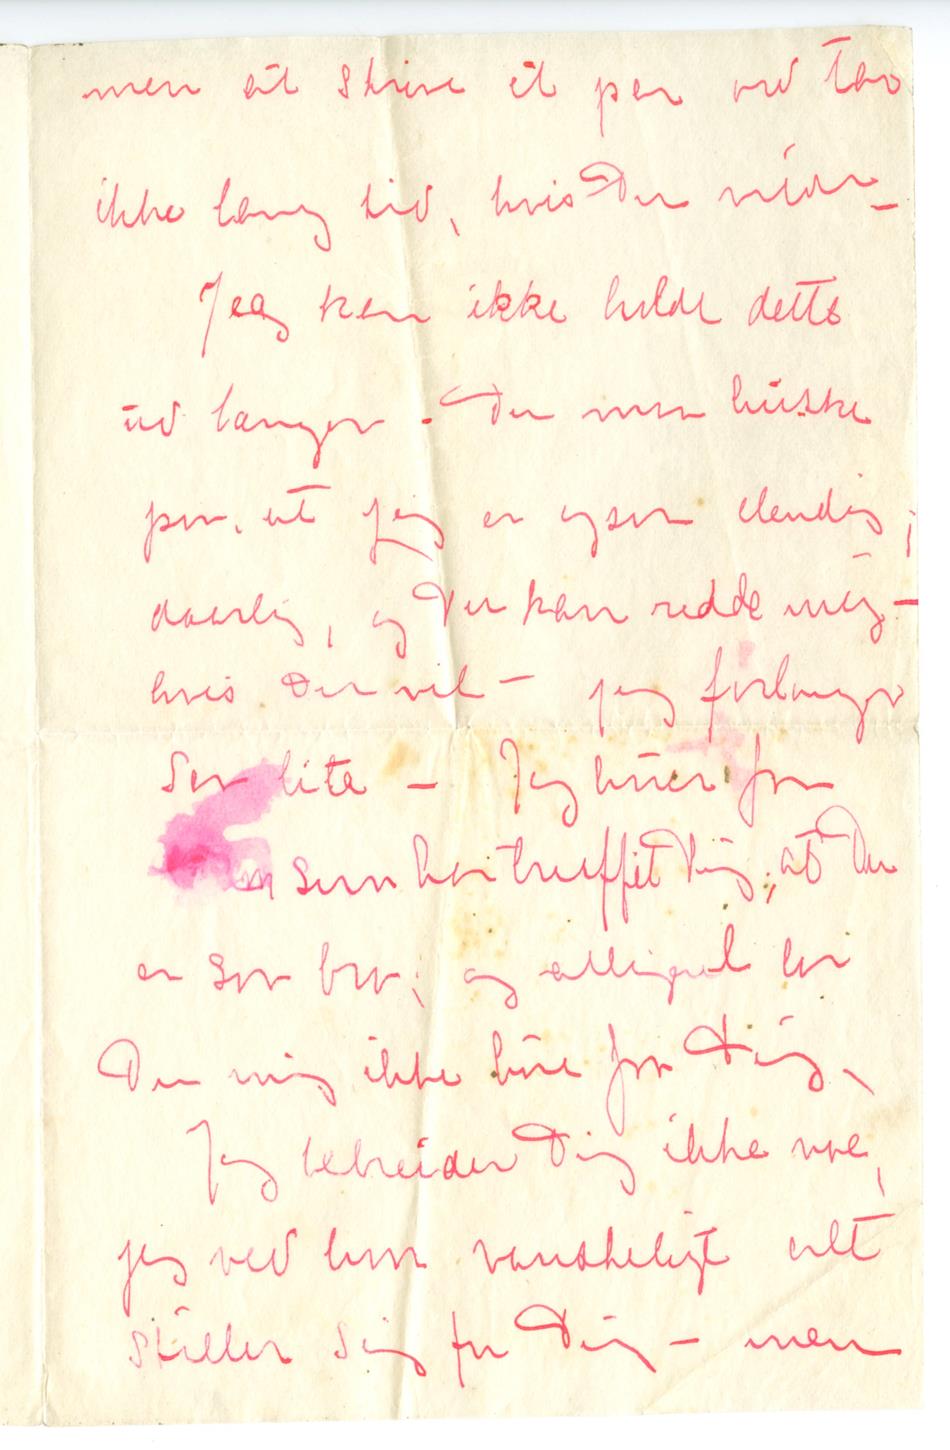 men at skrive et par ord tar
ikke lang tid, hvis Du vilde –
Jeg kan ikke holde dette
ud længer – Du maa huske
paa, at jeg er ogsaa elendig,
daarlig, og Du kan redde mig –
hvis Du vil – jeg forlanger
saa lite – Jeg hører fra
som har truffet Dig, at Du
er saa bra; og alligevel lar
Du mig ikke høre fra Dig,
Jeg bebreider Dig ikke noe,
jeg ved hvor vanskeligt alt
stiller sig for Dig – men